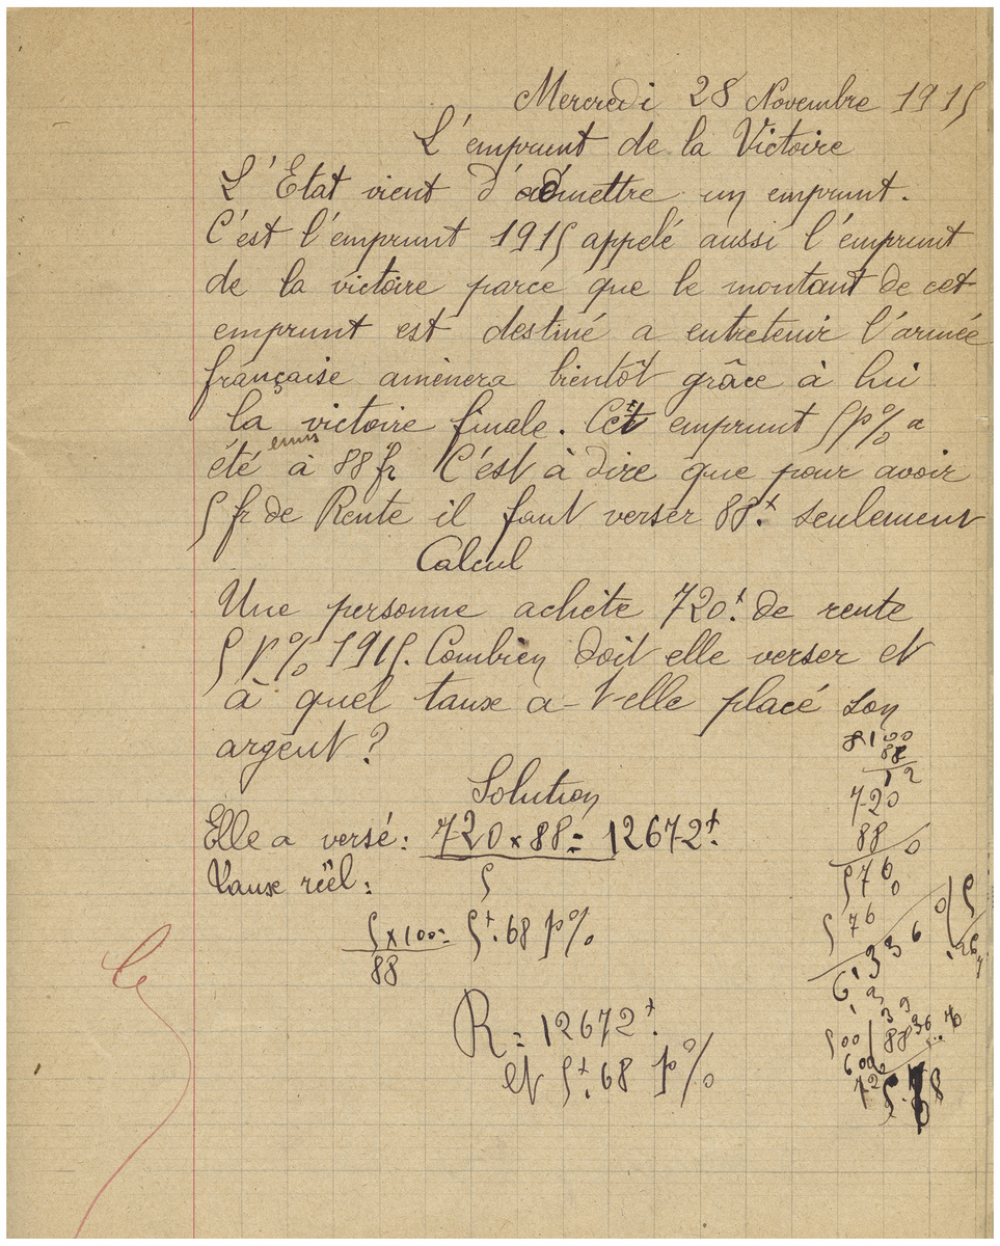 Mercredi 28 Novembre 1915
L'emprunt de la Victoire
L'Etat vient d'admettre un emprunt.
C'est l'emprunt 1915 appelé aussi l'emprunt
de la victoire parce que le montant de cet
emprunt est destiné a entretenir l'armée
française amènera bientôt grâce à lui
la victoire finale. Cet emprunt 5 p% a
été émis à 88 fr C'est à dire que pour avoir
5 fr de Rente il faut verser 88f. seulement
Calcul
Une personne achète 720f. de rente
5 p% 1915. Combien doit elle verser et
à quel taux a-t-elle placé son
argent ?
Solution
Elle a versé : 720 x 88 = 12672f.
5
Taux réel :
5 x 100 = 5f.68 p%
88
R = 12672f.
et 5f.68 p%
720
88
5760
576